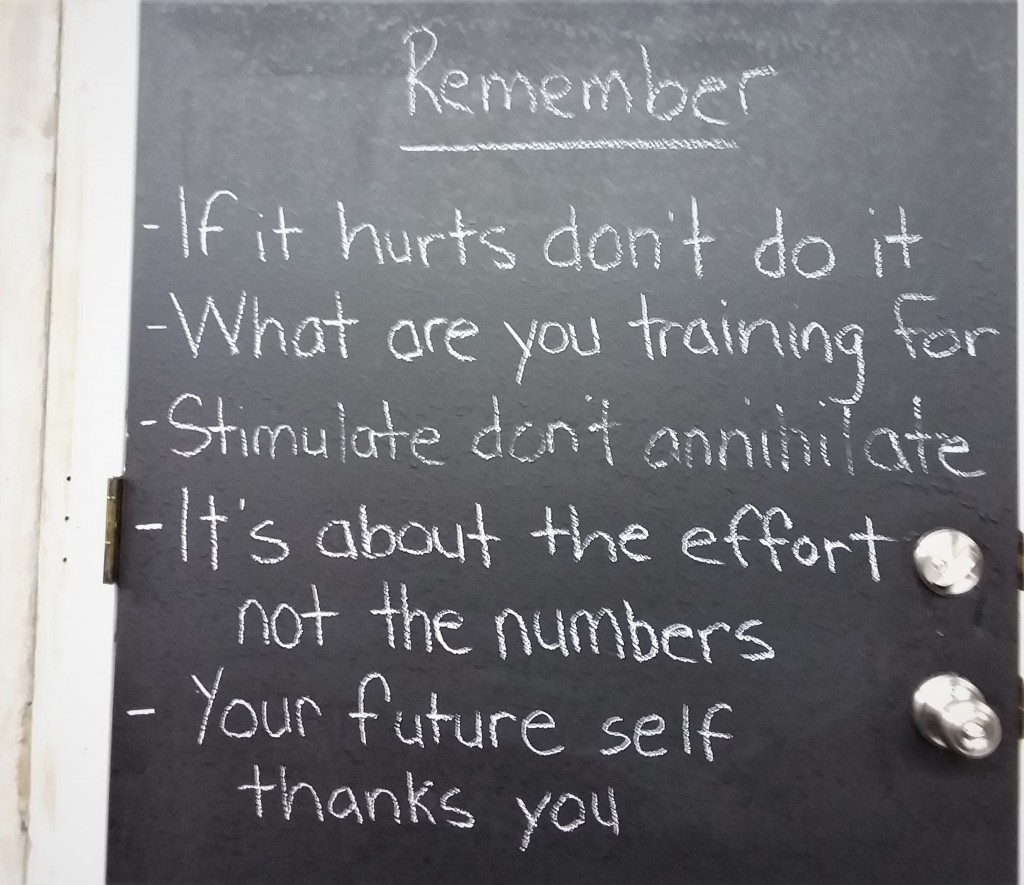 Remember
- If it hurts don't do it
- What are you training for
- Stimulate don't annihilate
- It's about the effort
not the numbers
- Your future self
thanks you